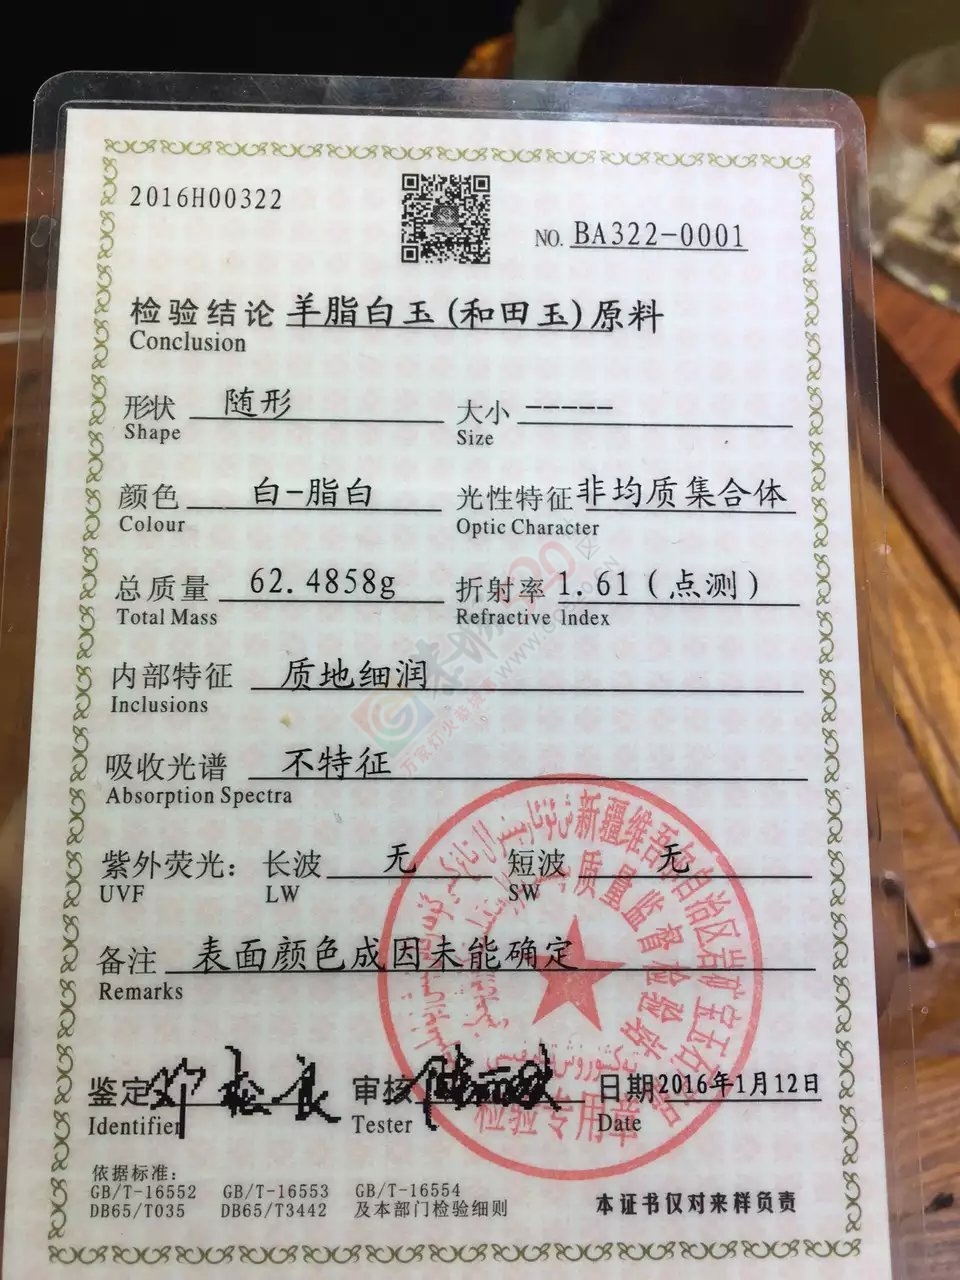 2016H00322
NO. BA322-0001
检验结论 羊脂白玉(和田玉)原料
Conclusion
形状 随形 大小 -----
Shape Size
颜色 白-脂白 光性特征 非均质集合体
Colour Optic Character
总质量 62.4858g 折射率 1.61 (点测)
Total Mass Refractive Index
内部特征 质地细润
Inclusions
吸收光谱 不特征
Absorption Spectra
紫外荧光: 长波 无 短波 无
UVF LW SW
备注 表面颜色成因未能确定
Remarks
新疆维吾尔自治区
质量监督检验站
检验专用章
鉴定 审核 日期 2016年1月12日
Identifier Tester Date
依据标准:
GB/T-16552 GB/T-16553 GB/T-16554
DB65/T035 DB65/T3442 及本部门检验细则
本证书仅对来样负责